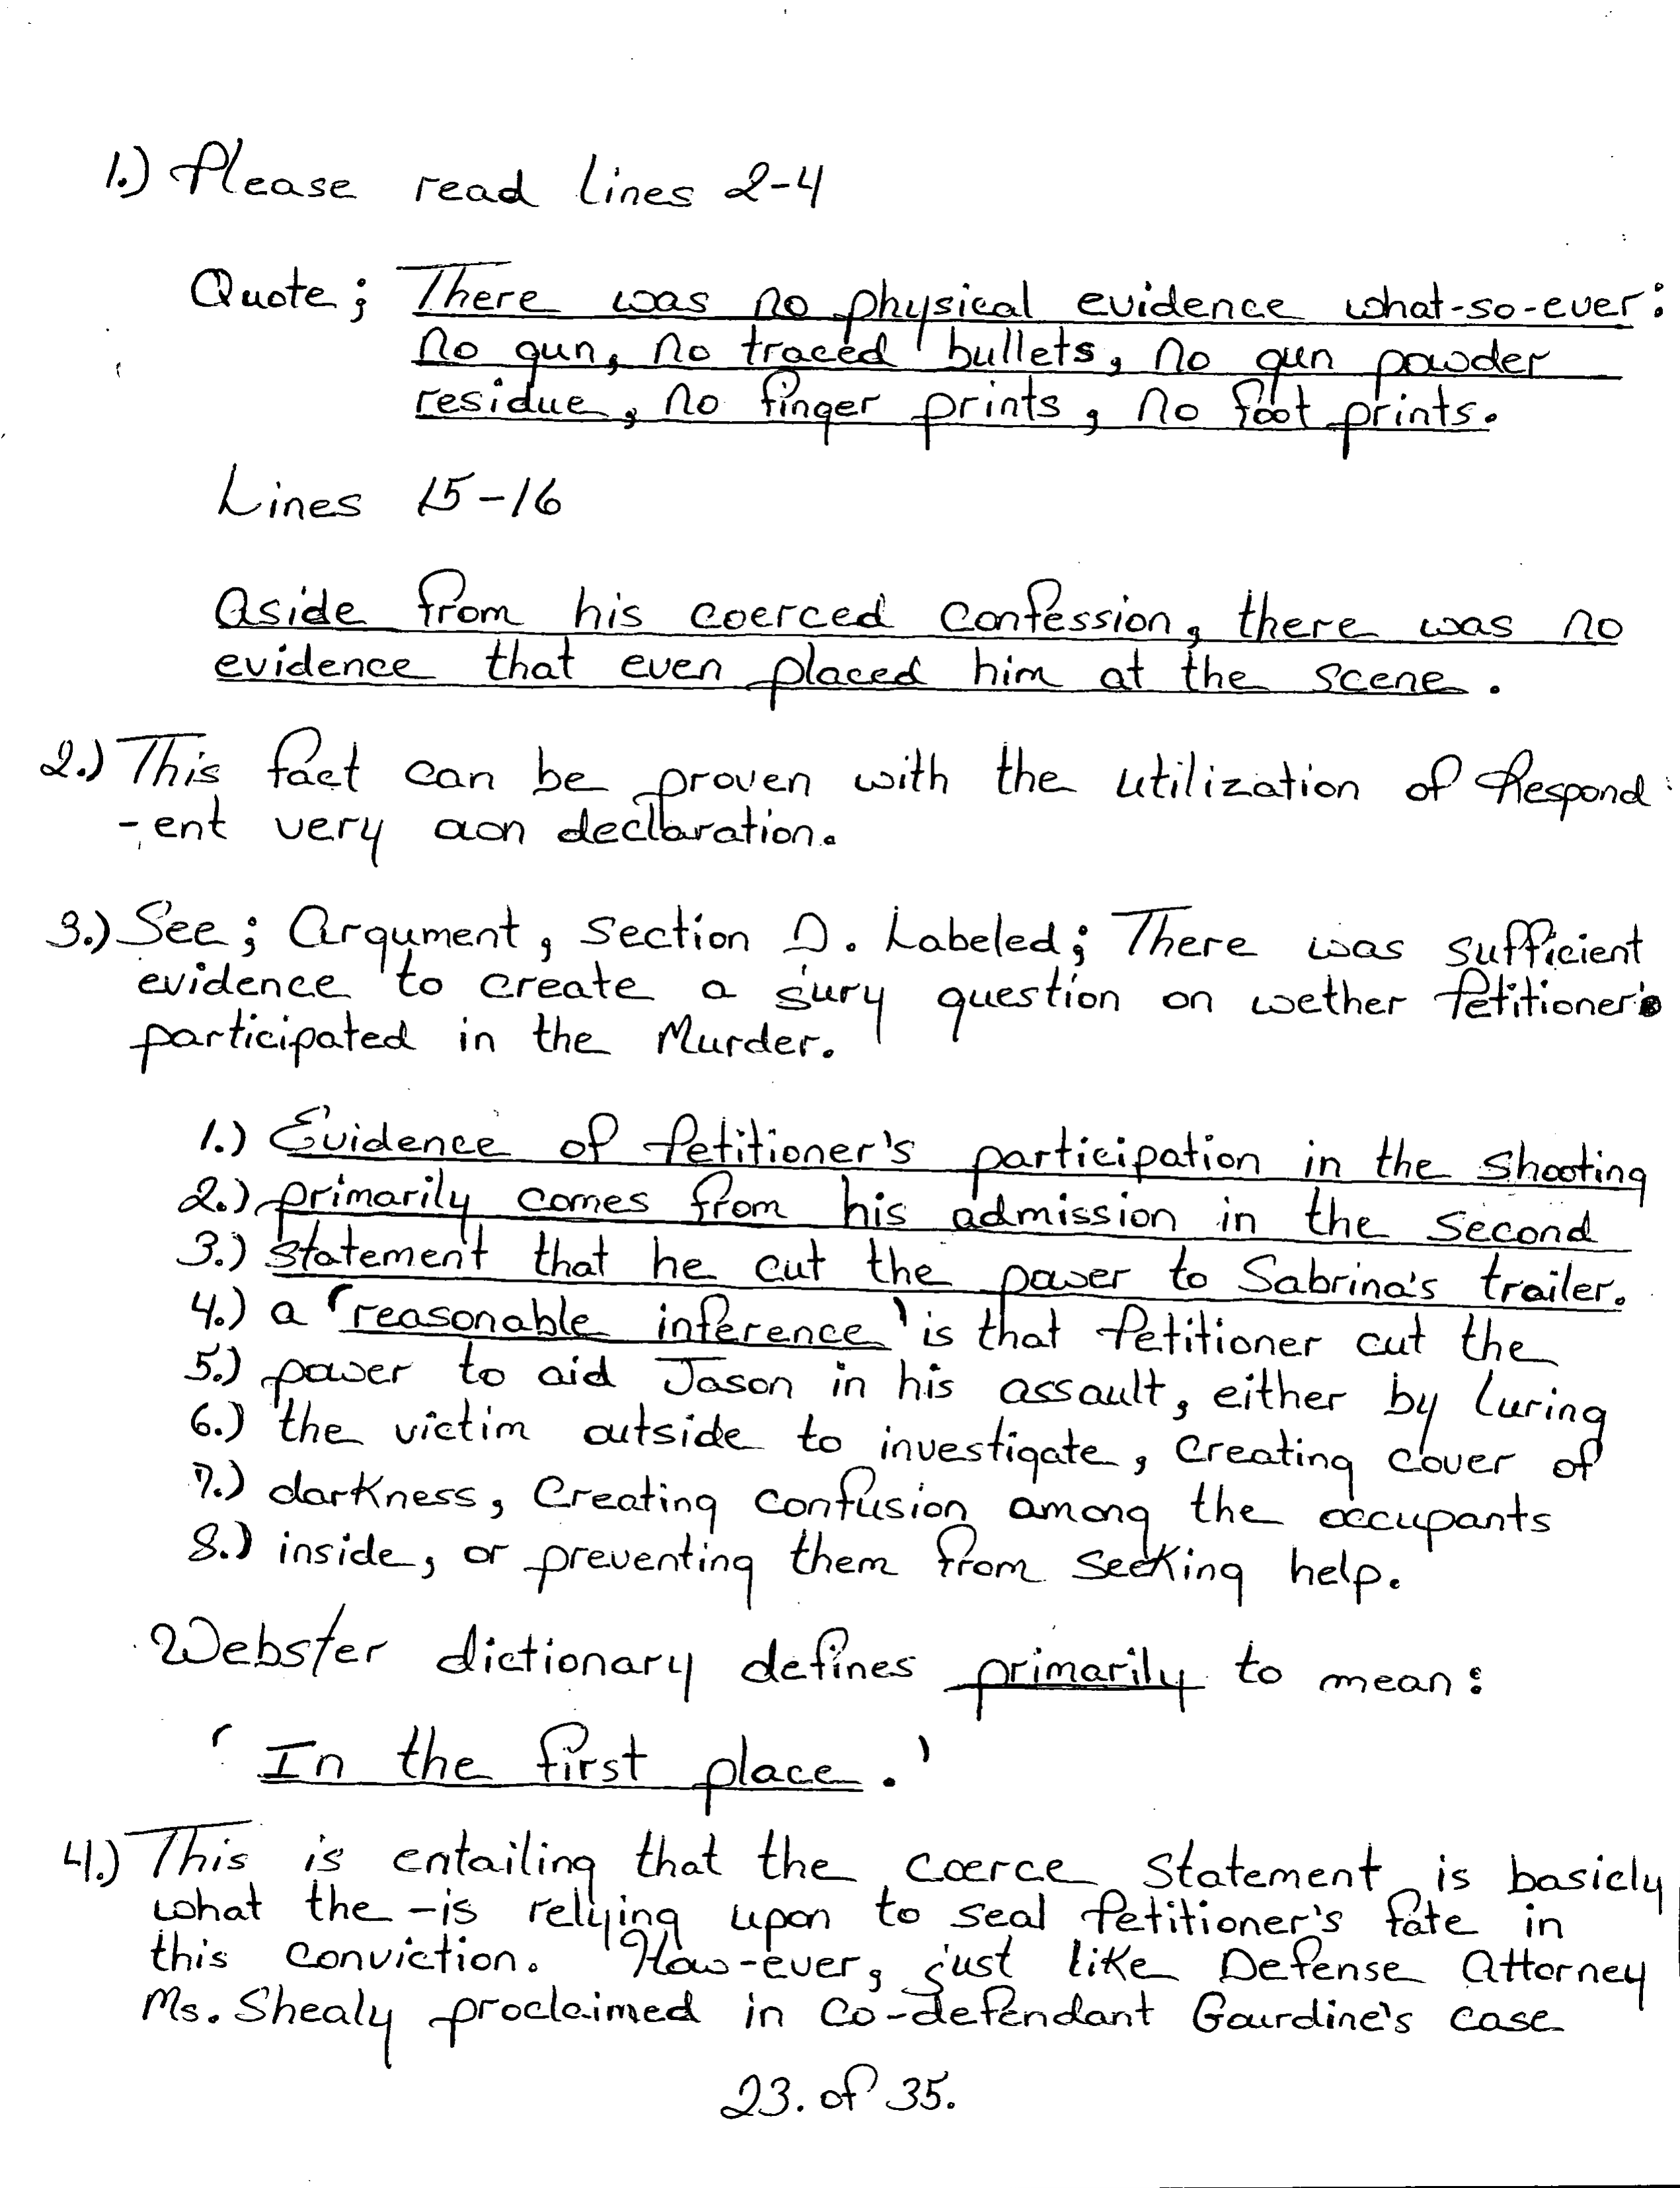 1.) Please read lines 2-4
Quote; There was no physical evidence what-so-ever:
no gun, no traced bullets, no gun powder
residue, no finger prints, no foot prints.
Lines 15-16
Aside from his coerced confession, there was no
evidence that even placed him at the scene.
2.) This fact can be proven with the utilization of Respond
-ent very aon declaration.
3.) See; Argument, Section D. Labeled; There was sufficient
evidence to create a jury question on wether Petitioner's
participated in the Murder.
1.) Evidence of Petitioner's participation in the shooting
2.) primarily comes from his admission in the second
3.) statement that he cut the power to Sabrina's trailer.
4.) a 'reasonable inference' is that Petitioner cut the
5.) power to aid Jason in his assault, either by luring
6.) the victim outside to investigate, creating cover of
7.) darkness, creating confusion among the occupants
8.) inside, or preventing them from seeking help.
Webster dictionary defines primarily to mean:
'In the first place.'
4.) This is entailing that the coerce statement is basicly
what the -is relying upon to seal Petitioner's fate in
this conviction. How-ever, just like Defense Attorney
Ms. Shealy proclaimed in Co-defendant Gourdine's case
23. of 35.